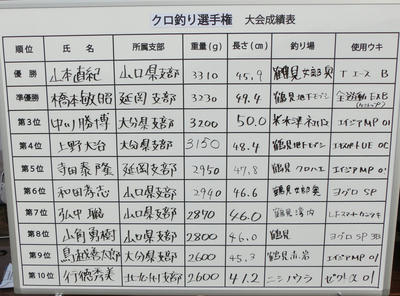 クロ釣り選手権 大会成績表
順位 氏名 所属支部 重量(g) 長さ(cm) 釣り場 使用ウキ
優勝 山本直紀 山口県支部 3310 45.9 鶴見 Tエース B
準優勝 橋本敏昭 延岡支部 3230 49.4 鶴見
第3位 中川勝博 大分県支部 3200 50.0 エイジア MP 01
第4位 上野大治 大分県支部 3150 48.4 鶴見 0C
第5位 寺田泰隆 延岡支部 2950 47.8 鶴見 クロハエ エイジア MP 01
第6位 和田孝志 山口県支部 2940 46.6 鶴見 ヨグロ SP
第7位 弘中 山口県支部 2870 46.0 鶴見湾内
第8位 山角勇樹 山口県支部 2800 46.0 鶴見 ヨグロ SP 3B
第9位 鳥越善太郎 大分県支部 2600 45.3 鶴見 エイジア MP 01
第10位 行徳秀美 北九州支部 2600 41.2 ニシノウラ 01